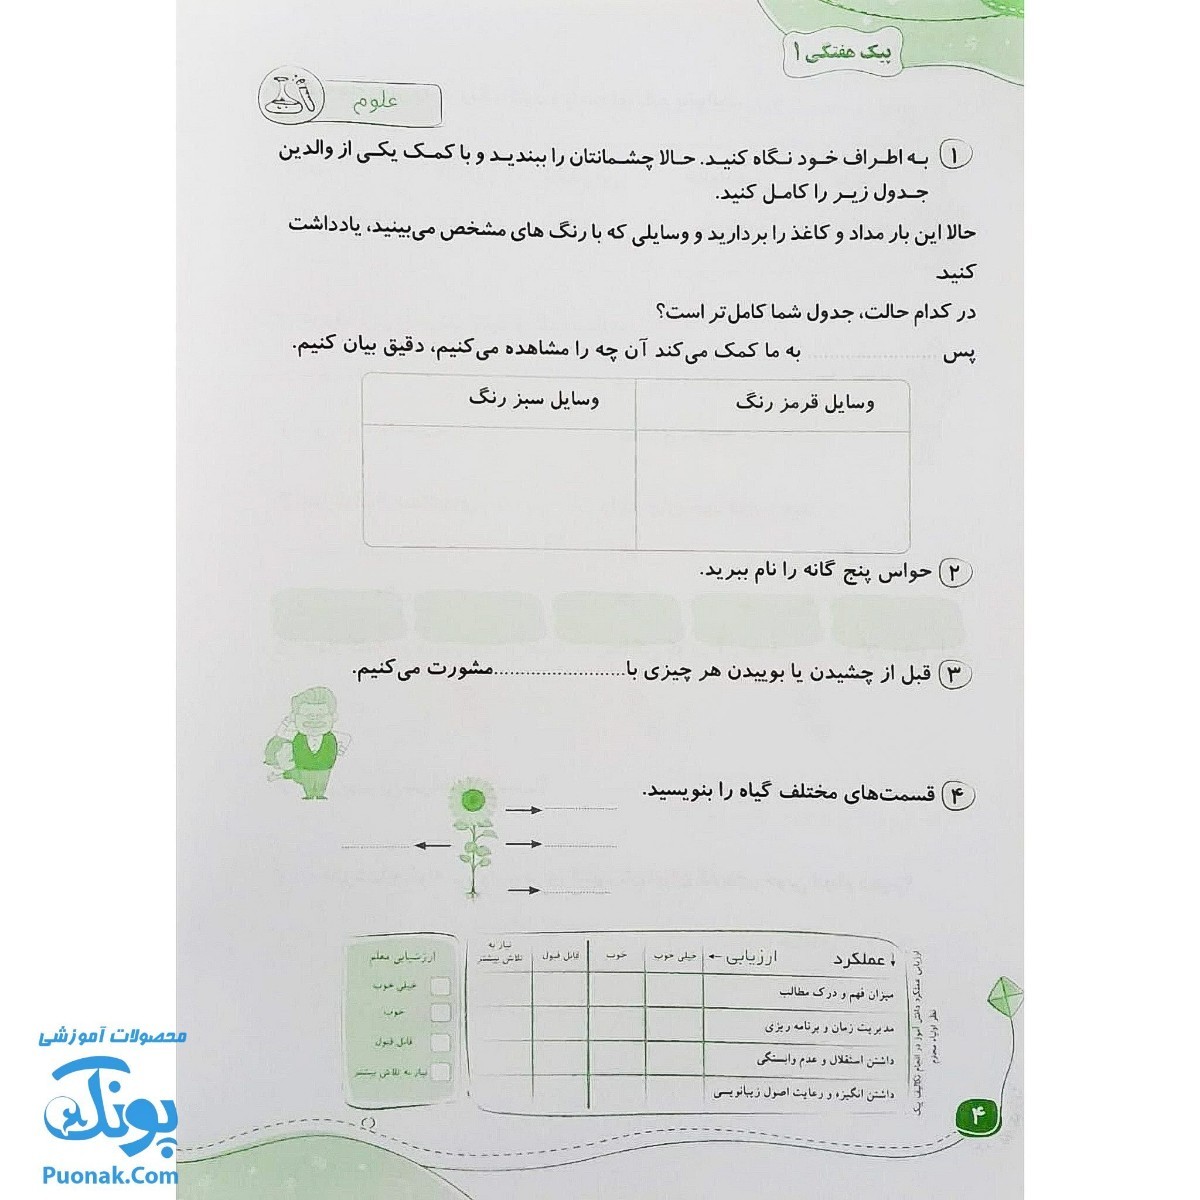 پیک هفتگی ۱
علوم
۱ به اطراف خود نگاه کنید. حالا چشمانتان را ببندید و با کمک یکی از والدین
جدول زیر را کامل کنید.
حالا این بار مداد و کاغذ را بردارید و وسایلی که با رنگ های مشخص می‌بینید، یادداشت
کنید.
در کدام حالت، جدول شما کامل‌تر است؟
پس ........................ به ما کمک می‌کند آن چه را مشاهده می‌کنیم، دقیق بیان کنیم.
وسایل قرمز رنگ
وسایل سبز رنگ
۲ حواس پنج گانه را نام ببرید.
۳ قبل از چشیدن یا بوییدن هر چیزی با........................مشورت می‌کنیم.
۴ قسمت‌های مختلف گیاه را بنویسید.
ارزیابی عملکرد دانش آموز در انجام تکالیف پیک
نظر اولیاء محترم
عملکرد
ارزیابی
خیلی خوب
خوب
قابل قبول
نیاز به
تلاش بیشتر
میزان فهم و درک مطالب
مدیریت زمان و برنامه ریزی
داشتن استقلال و عدم وابستگی
داشتن انگیزه و رعایت اصول زیبانویسی
ارزشیابی معلم
خیلی خوب
خوب
قابل قبول
نیاز به تلاش بیشتر
۴
محصولات آموزشی
پونک
Puonak.Com